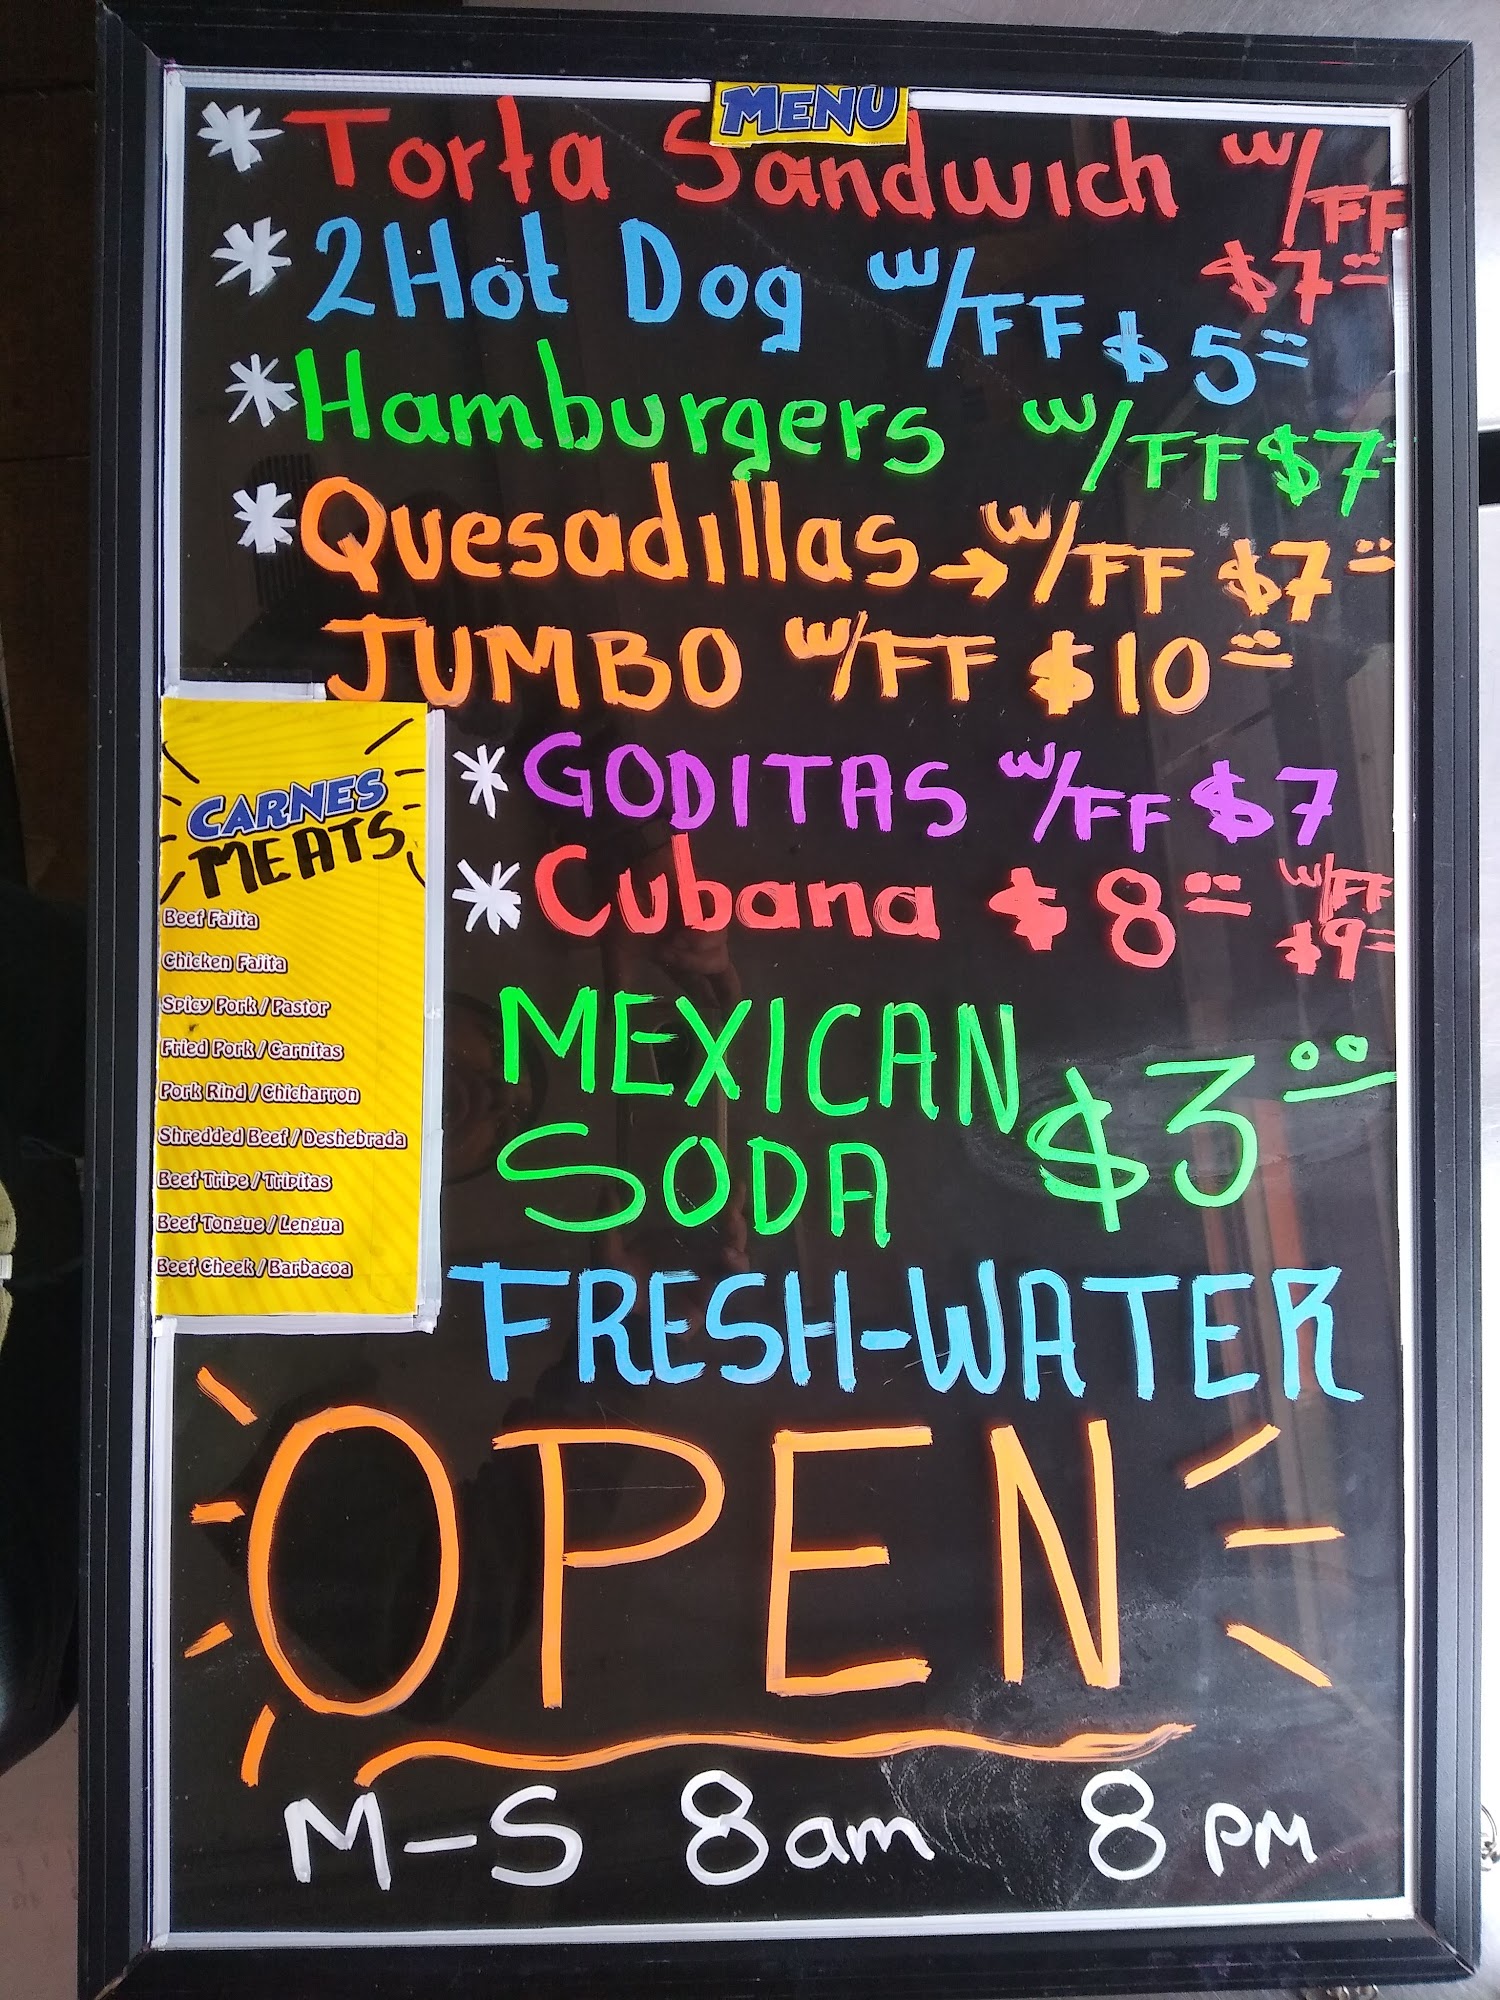 MENU
* Torta Sandwich w/FF
$7=
* 2Hot Dog w/FF $5=
* Hamburgers w/FF $7=
* Quesadillas → w/FF $7=
JUMBO w/FF $10=
* GODITAS w/FF $7
* Cubana $8= w/FF
$9=
CARNES
MEATS
Beef Fajita
Chicken Fajita
Spicy Pork / Pastor
Fried Pork / Carnitas
Pork Rind / Chicharron
Shredded Beef / Deshebrada
Beef Tripe / Tripitas
Beef Tongue / Lengua
Beef Cheek / Barbacoa
MEXICAN
SODA $3 00
FRESH-WATER
OPEN
M-S 8am 8PM